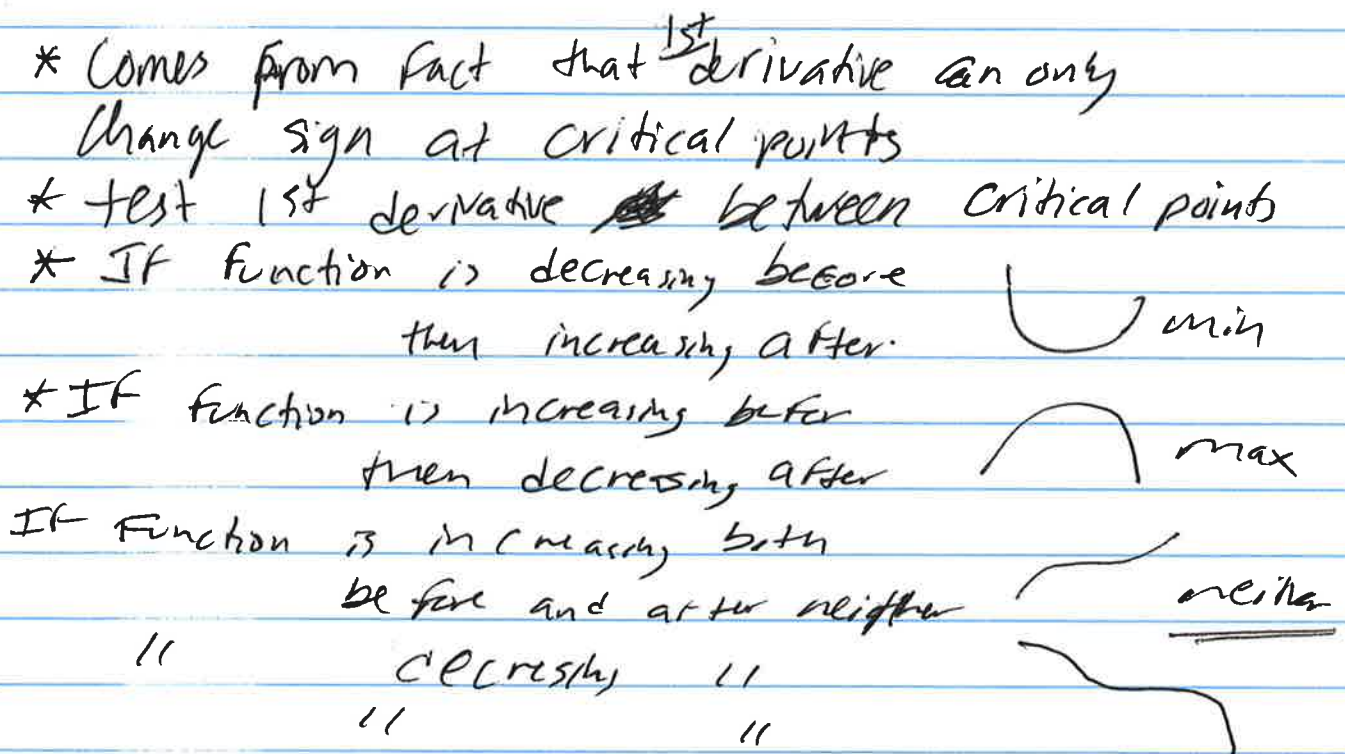 * Comes from fact that 1st derivative can only
change sign at critical points
* test 1st derivative between critical points
* If function is decreasing before
then increasing after.
min
* If function is increasing befor
then decreasing after
max
If Function is increasing both
before and after neigther
neither
" decresing "
" "